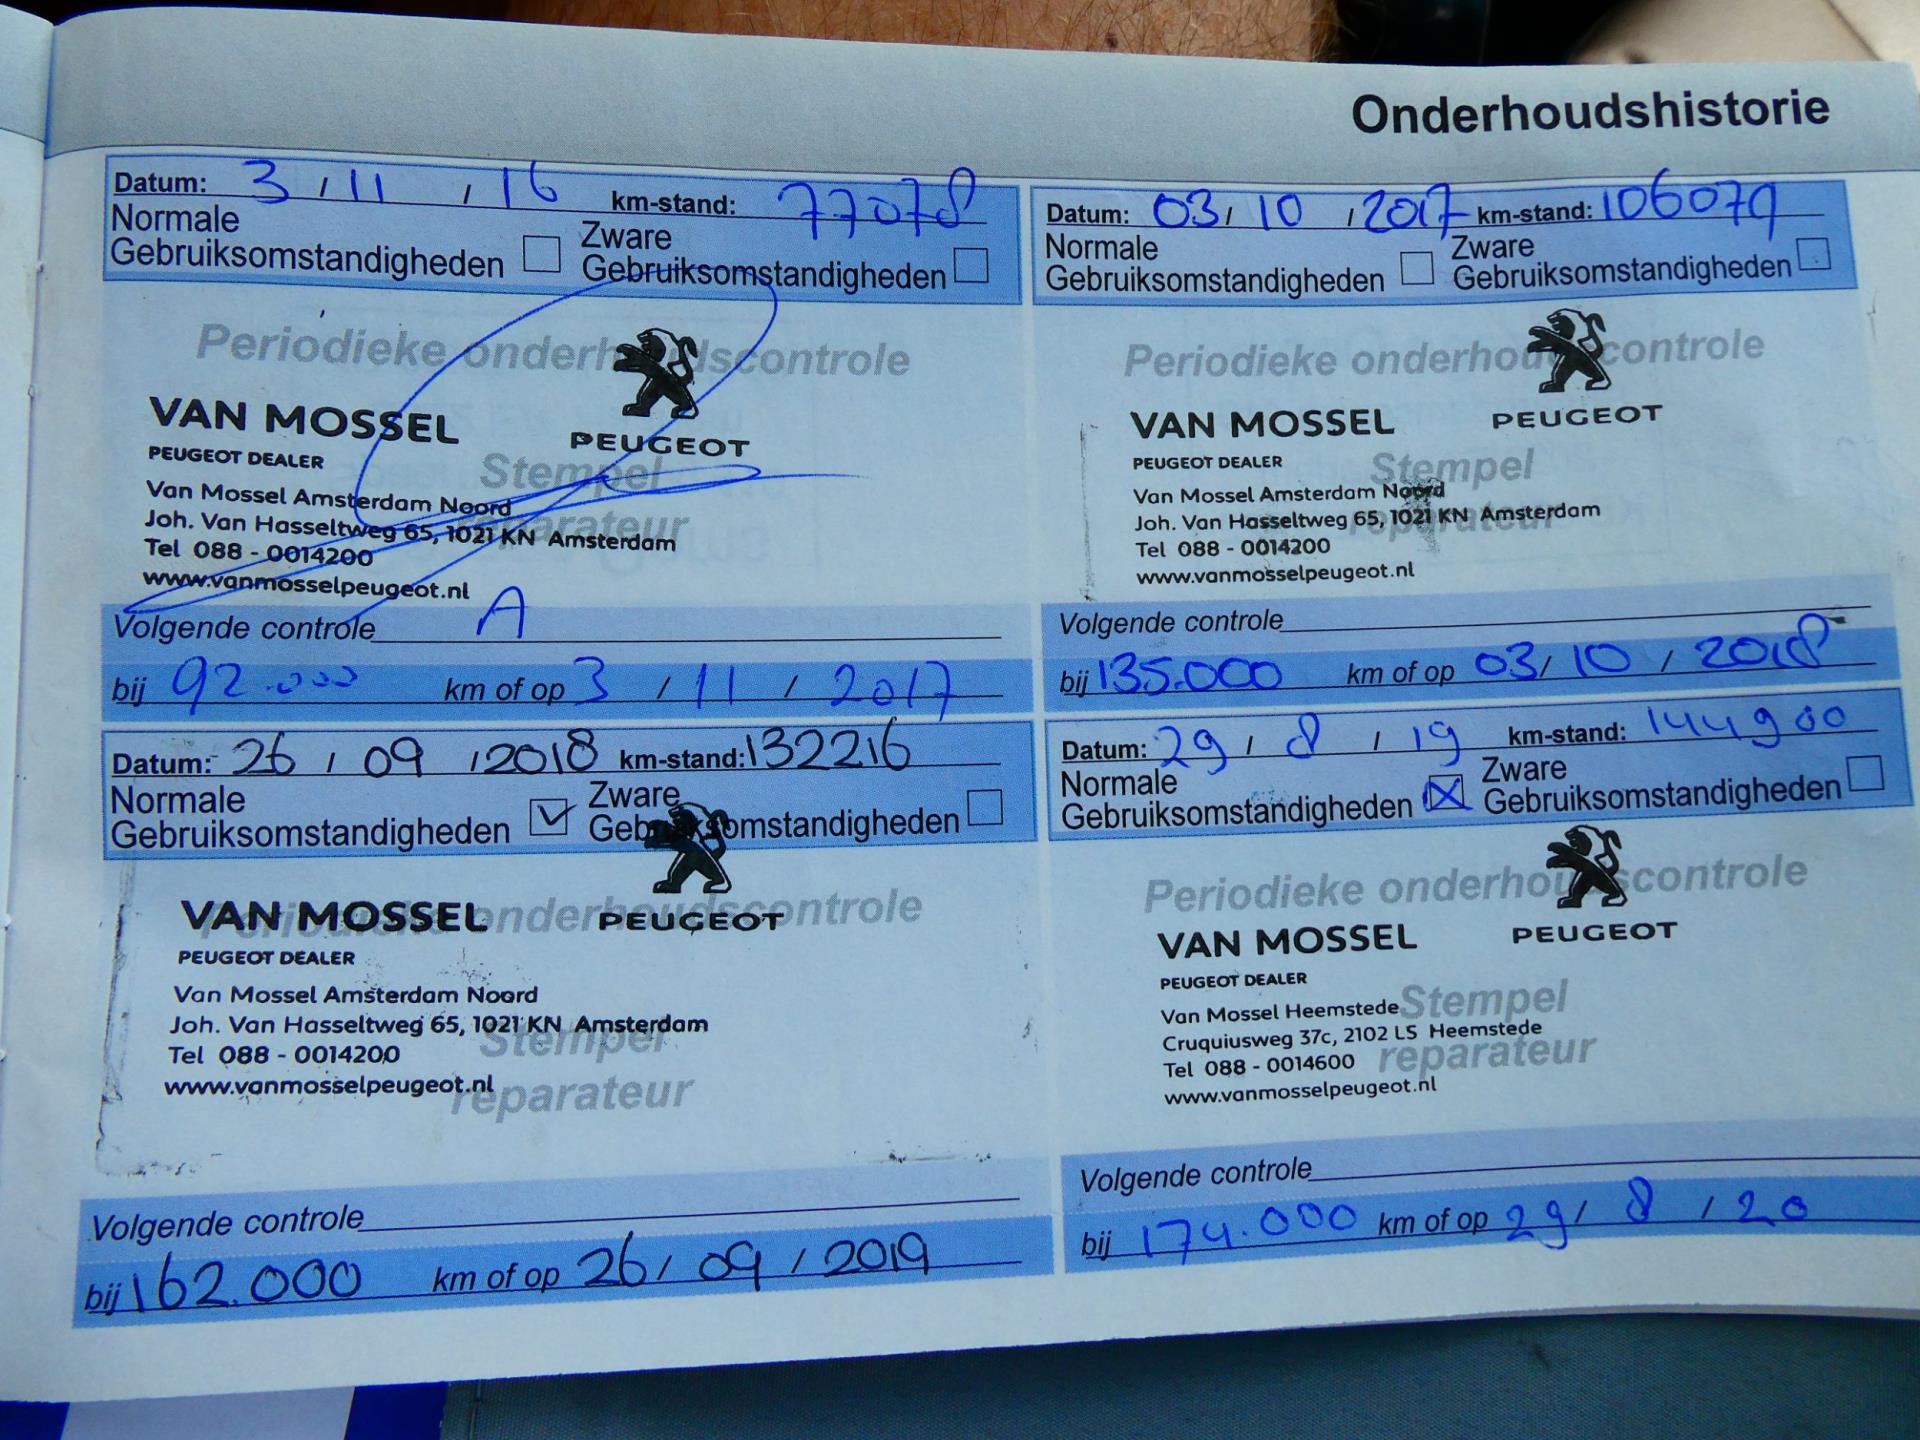 Onderhoudshistorie
Datum: 3 / 11 / 16 km-stand: 77078
Normale
Gebruiksomstandigheden
Zware
Gebruiksomstandigheden
Periodieke onderhoudscontrole
VAN MOSSEL
PEUGEOT
PEUGEOT DEALER
Stempel
reparateur
Van Mossel Amsterdam Noord
Joh. Van Hasseltweg 65, 1021 KN Amsterdam
Tel 088 - 0014200
www.vanmosselpeugeot.nl
Volgende controle A
bij 92.000 km of op 3 / 11 / 2017
Datum: 03 / 10 / 2017 km-stand: 106079
Normale
Gebruiksomstandigheden
Zware
Gebruiksomstandigheden
Periodieke onderhoudscontrole
VAN MOSSEL
PEUGEOT
PEUGEOT DEALER
Stempel
reparateur
Van Mossel Amsterdam Noord
Joh. Van Hasseltweg 65, 1021 KN Amsterdam
Tel 088 - 0014200
www.vanmosselpeugeot.nl
Volgende controle
bij 135.000 km of op 03 / 10 / 2018
Datum: 26 / 09 / 2018 km-stand: 132216
Normale
Gebruiksomstandigheden
Zware
Gebruiksomstandigheden
Periodieke onderhoudscontrole
VAN MOSSEL
PEUGEOT
PEUGEOT DEALER
Van Mossel Amsterdam Noord
Joh. Van Hasseltweg 65, 1021 KN Amsterdam
Stempel
Tel 088 - 0014200
www.vanmosselpeugeot.nl
reparateur
Volgende controle
bij 162.000 km of op 26 / 09 / 2019
Datum: 29 / 8 / 19 km-stand: 144900
Normale
Gebruiksomstandigheden
Zware
Gebruiksomstandigheden
Periodieke onderhoudscontrole
VAN MOSSEL
PEUGEOT
PEUGEOT DEALER
Stempel
Van Mossel Heemstede
Cruquiusweg 37c, 2102 LS Heemstede
reparateur
Tel 088 - 0014600
www.vanmosselpeugeot.nl
Volgende controle
bij 174.000 km of op 29 / 8 / 20